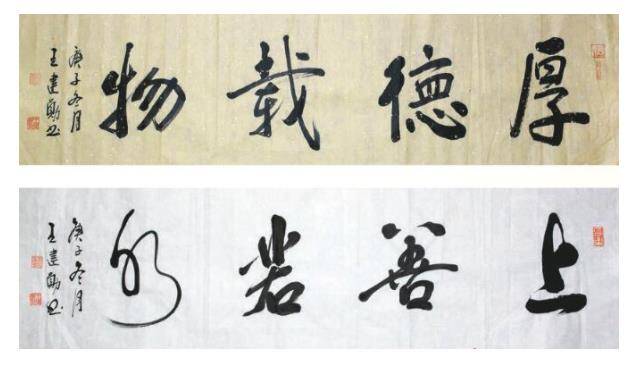 厚德載物
庚子冬月
王建勋书
上善若水
庚子冬月
王建勋书